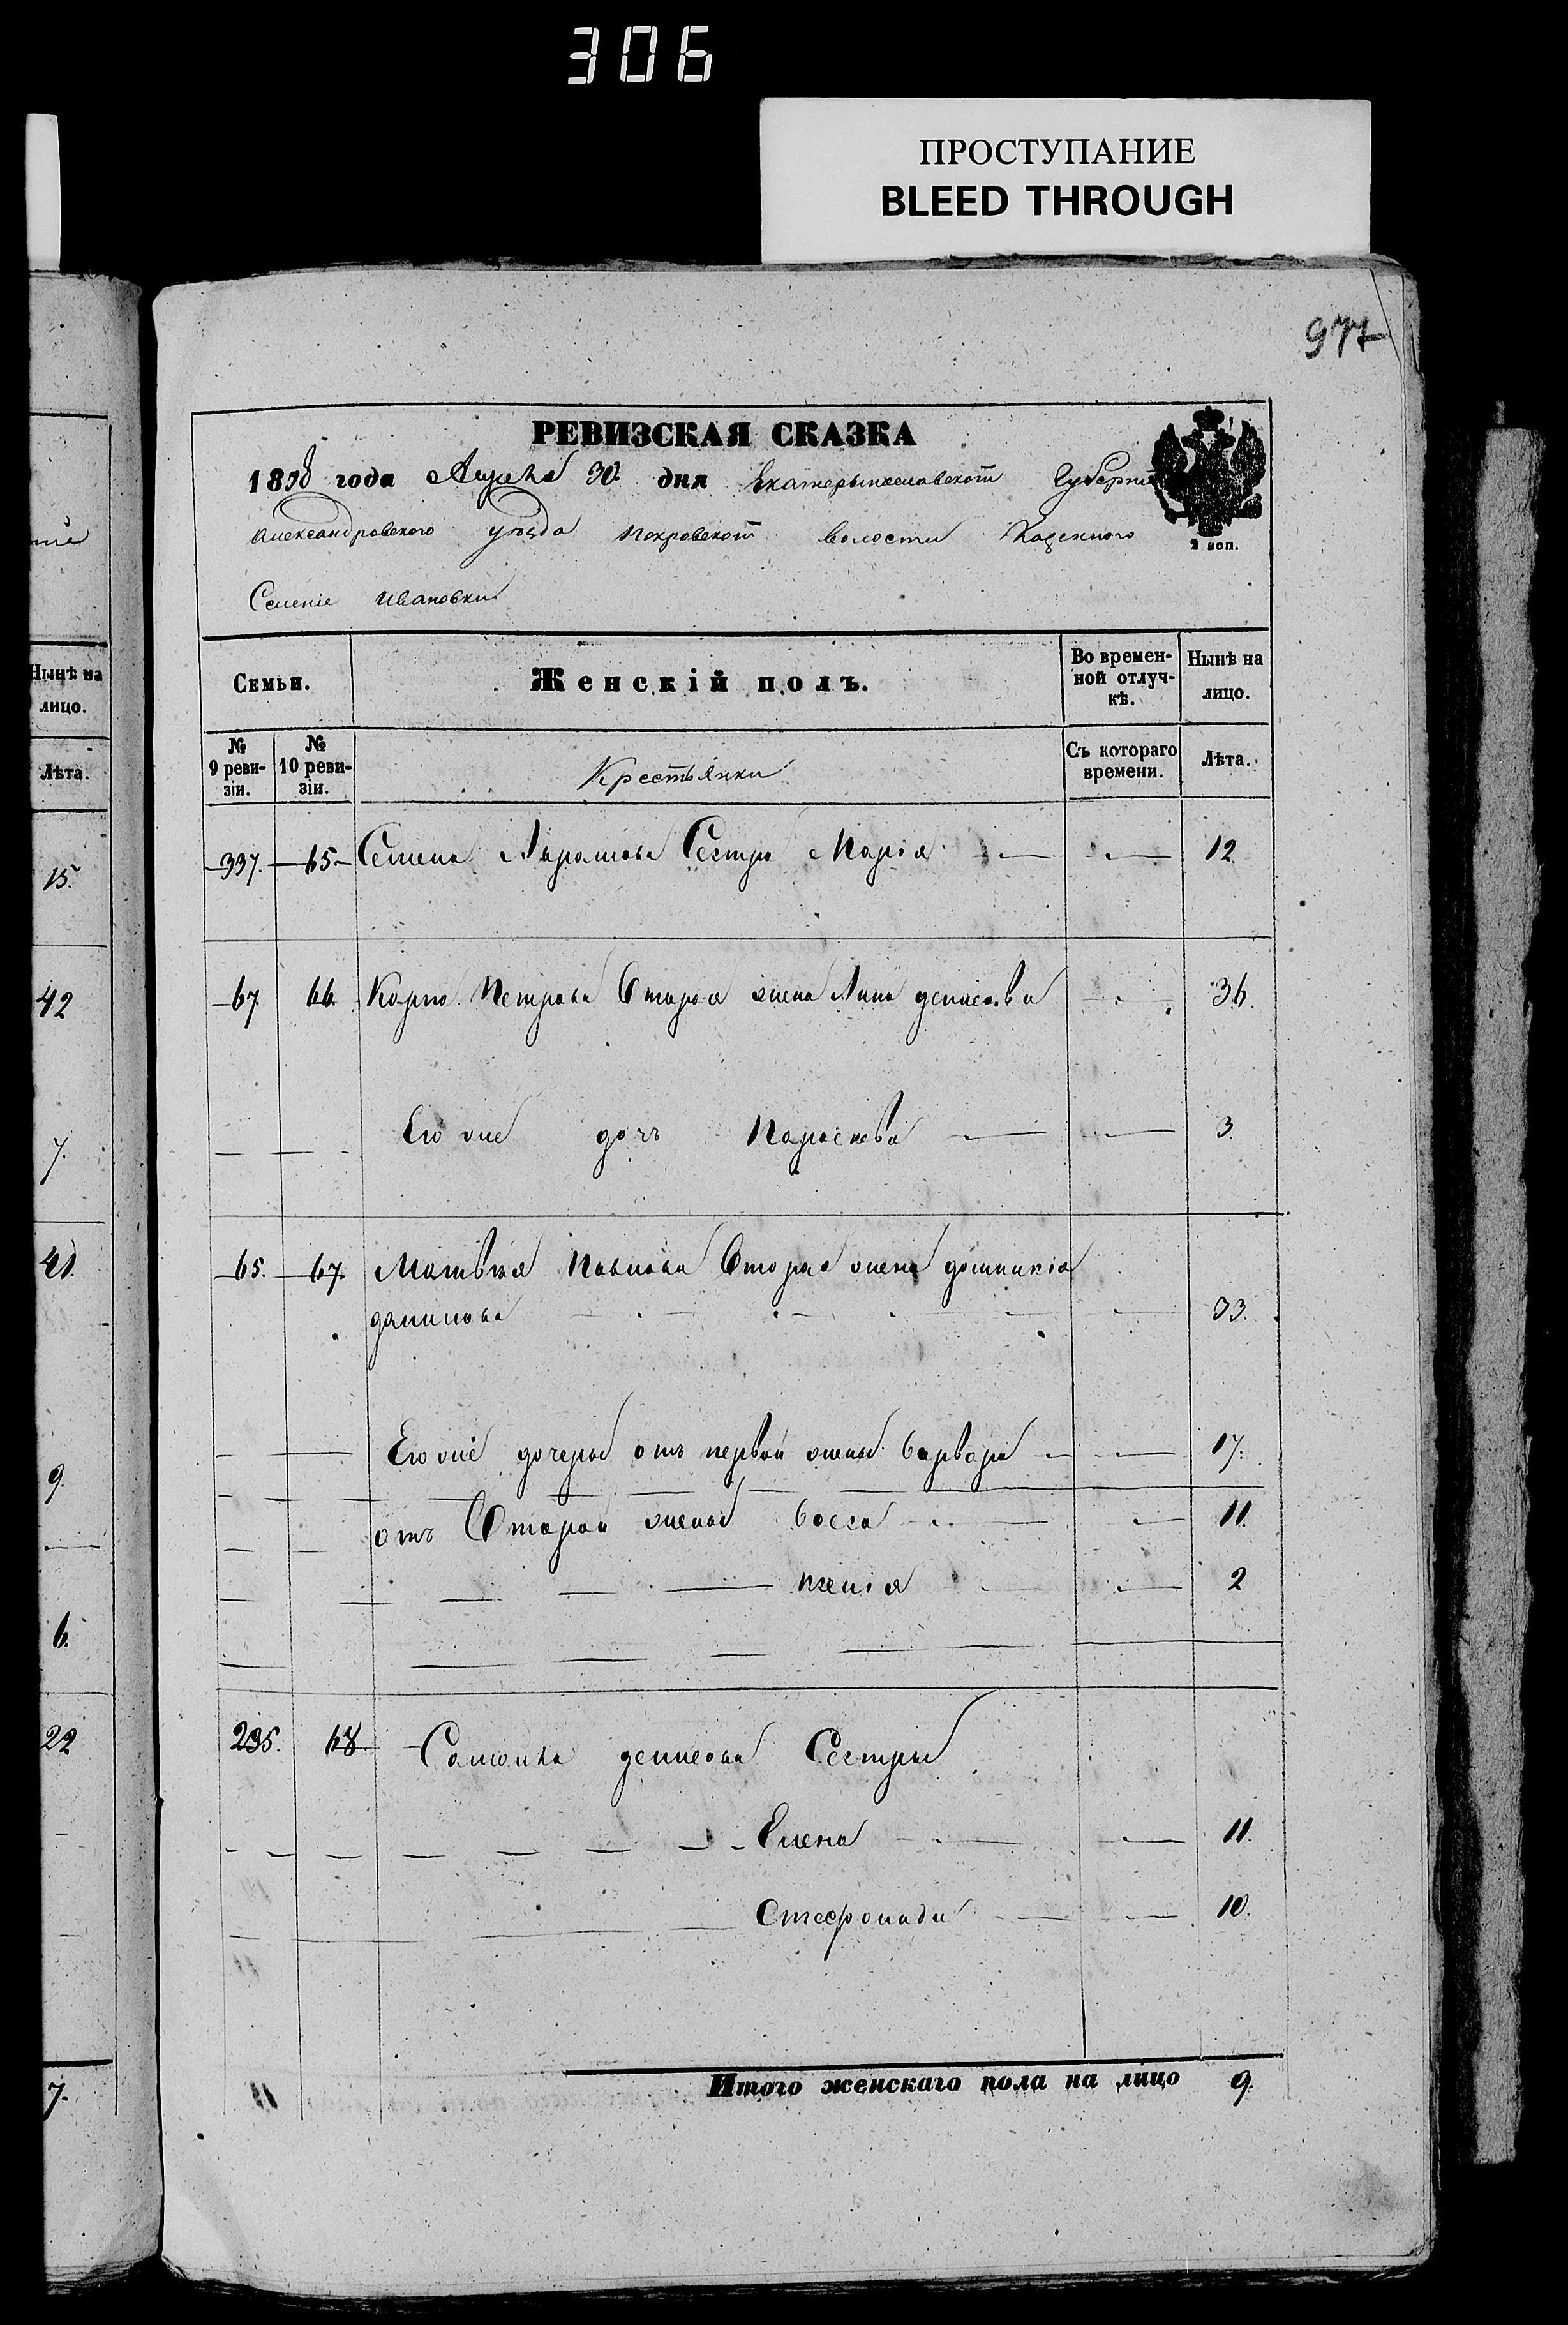 306
ПРОСТУПАНИЕ
BLEED THROUGH
977
РЕВИЗСКАЯ СКАЗКА
1858 года Апреля 30 дня Екатерынославской Губерніи
Александровского уезда Покровской волости Казенного
Селеніе Ивановки
2 коп.
Семьи. Женскій полъ. Во временной отлучкѣ. Нынѣ на лицо.
№ 9 ревизіи. № 10 ревизіи. Крестьянки Съ котораго времени. Лѣта.
337. 65 Семена Сестра Марія 12
67 66 Карпа Петрова вторая жена Анна денисова 36.
Его же дочь Параскева 3.
65. 67 Матвея Павлова вторая жена домникія
данилова 33.
Его же дочеры отъ первой жены варвара 17.
отъ второй жены васса 11.
ксенія 2
235. 68 денисова Сестры
Елена 11.
Стефонида 10.
Итого женскаго пола на лицо 9.
Нынѣ на
лицо.
Лѣта.
15.
42
7.
41.
9.
6.
22
7.